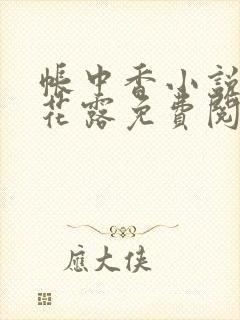 帳中香小說
花露免費閱
應大俠